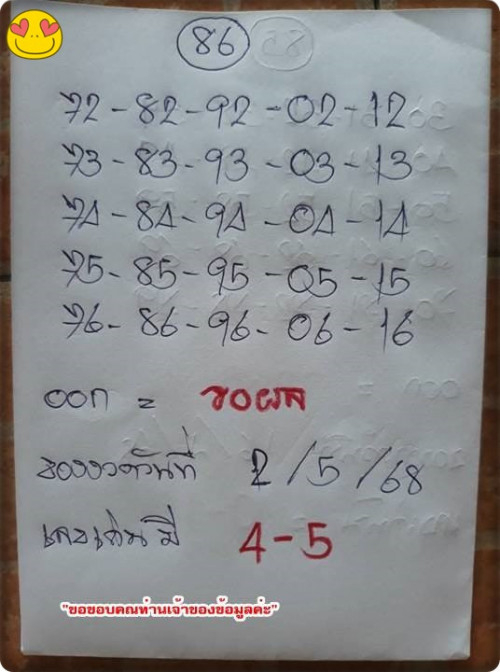 86
72-82-92-02-12
73-83-93-03-13
74-84-94-04-14
75-85-95-05-15
76-86-96-06-16
ออก = รอผล
ของงวดวันที่ 2/5/68
เลขเด่นมี 4-5
"ขอขอบคุณท่านเจ้าของข้อมูลค่ะ"